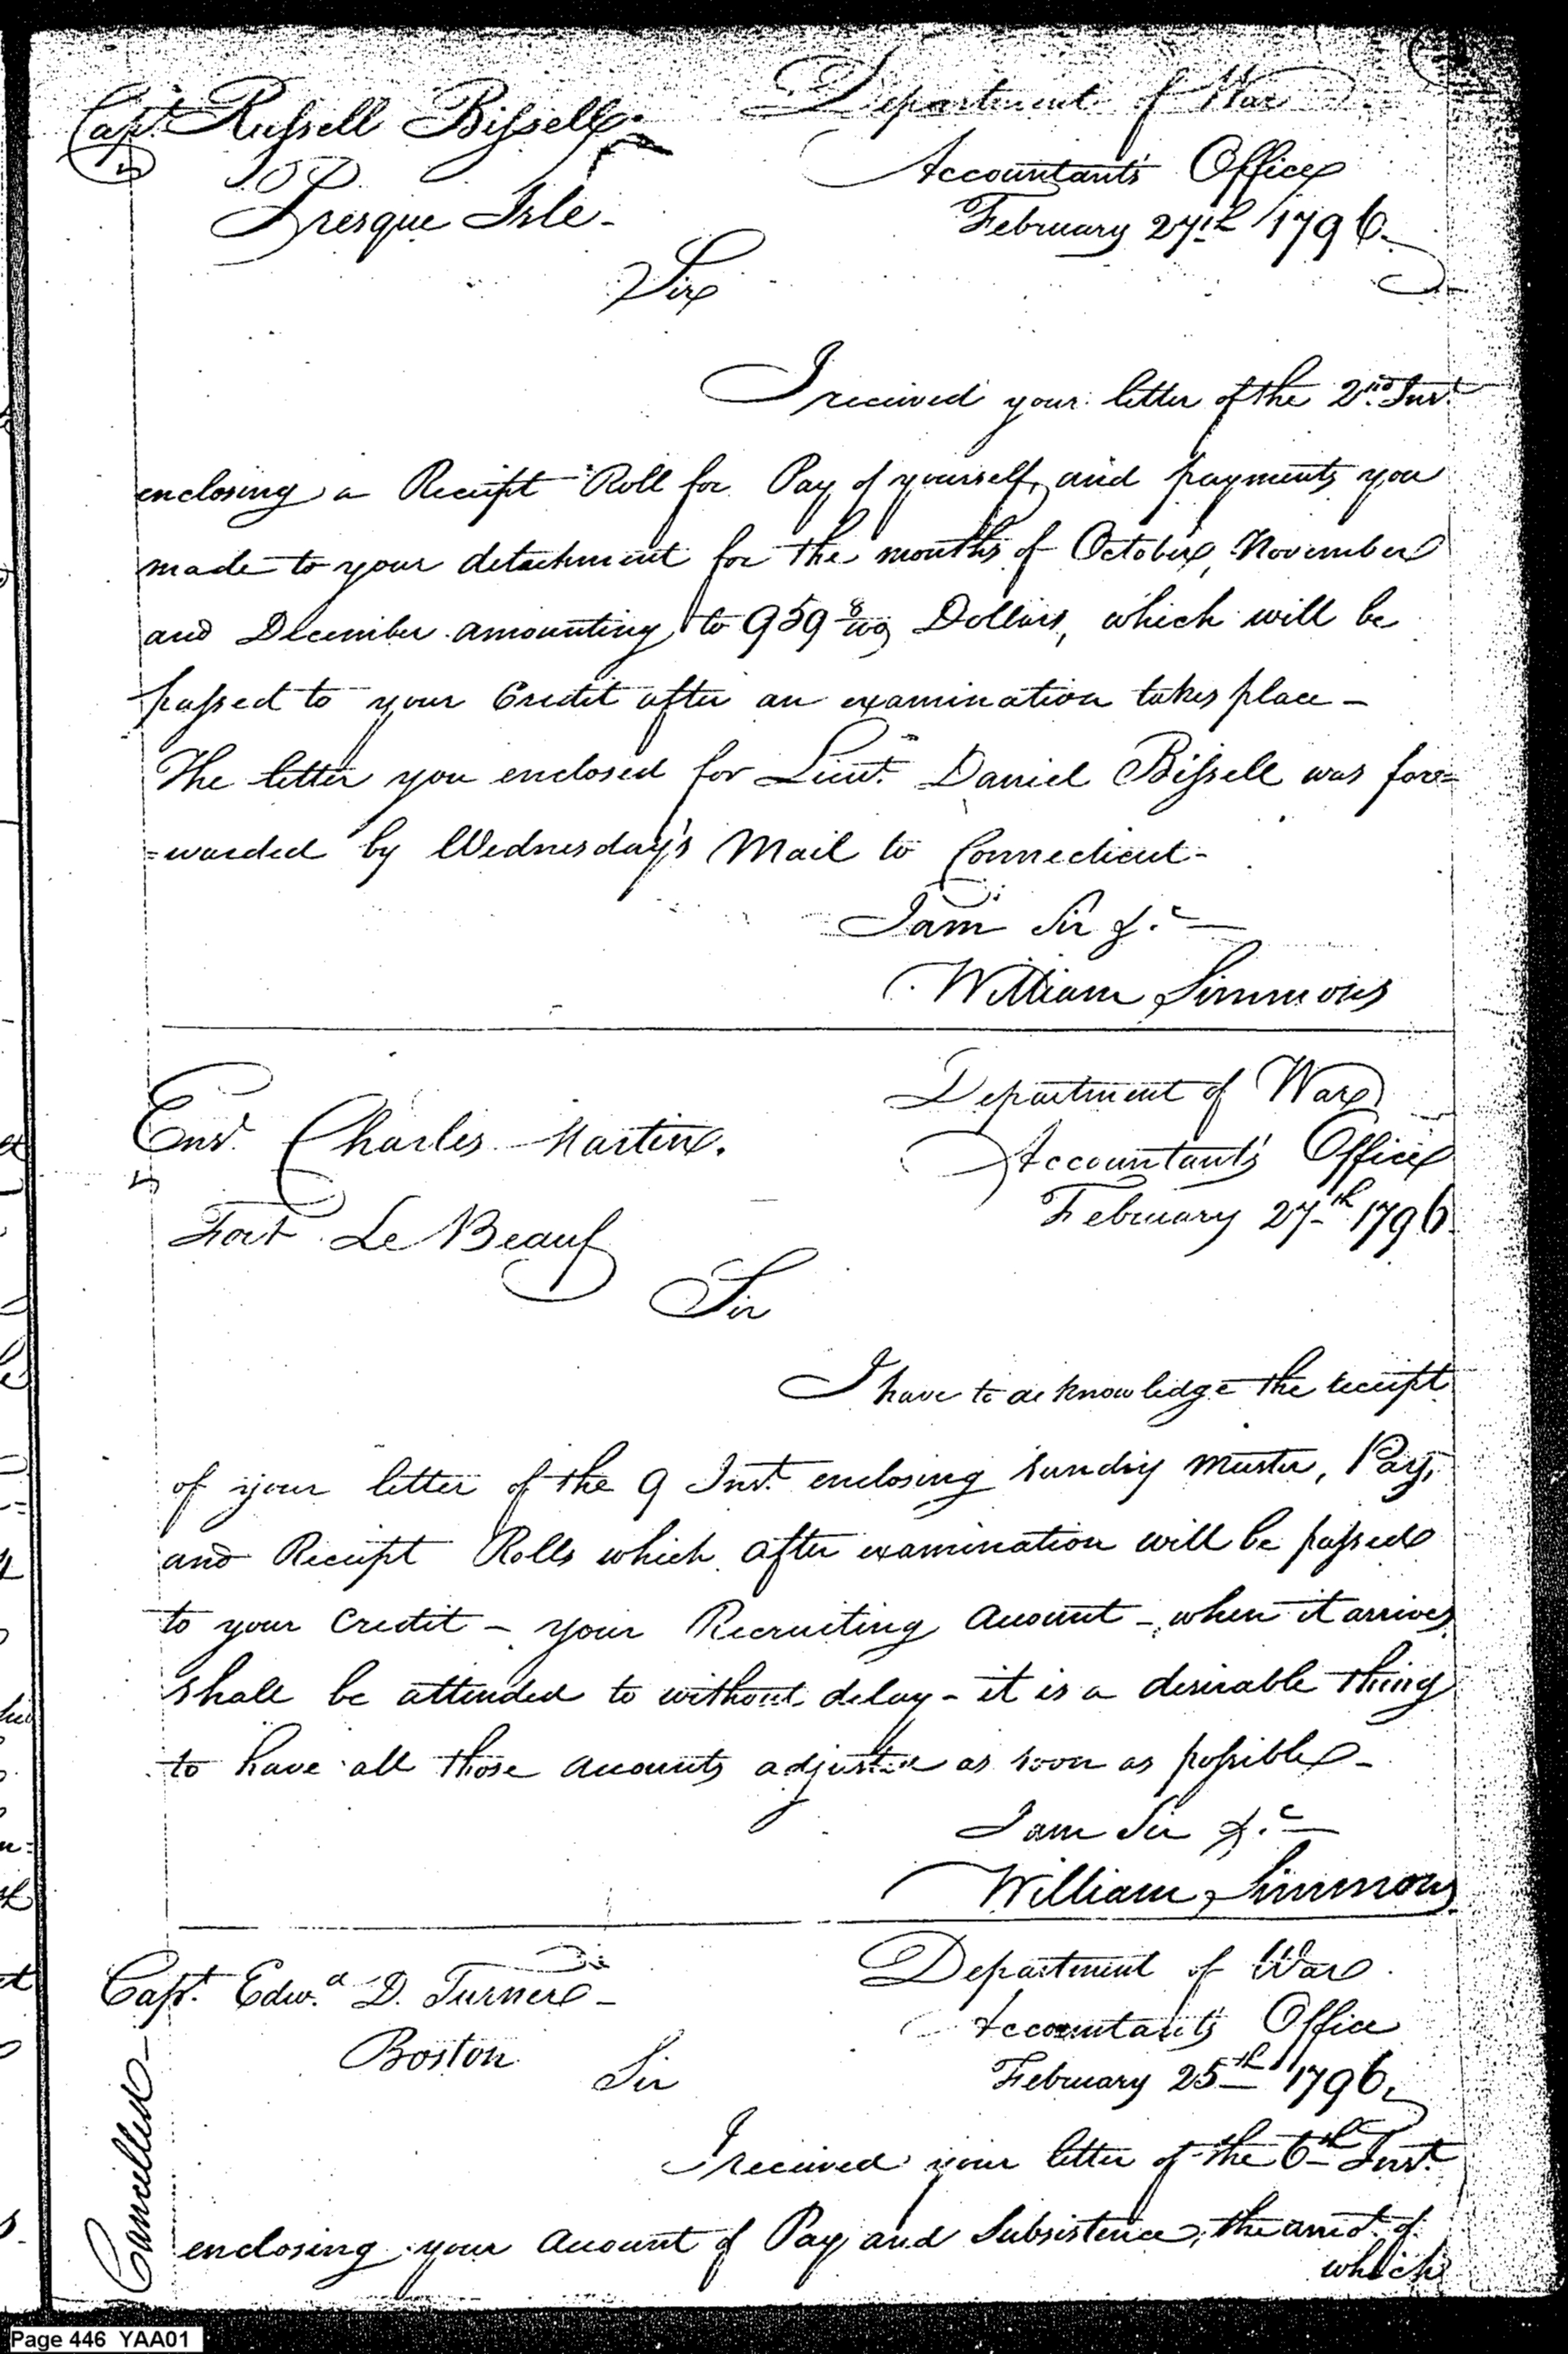 Capt. Russell Bissell.
Presque Isle-
Department of War
Accountant's Office
February 27th 1796.
Sir
I received your letter of the 2nd Inst
enclosing a Receipt Roll for Pay of yourself, and payments you
made to your detachment for the months of October, November
and December amounting to 959 8/100 Dollars, which will be
passed to your Credit after an examination takes place-
The letter you enclosed for Lieut. Daniel Bissell was for=
=warded by Wednesday's Mail to Connecticut-
I am Sir &c-
William Simmons
Ens. Charles Martin.
Fort Le Beauf
Department of War
Accountant's Office
February 27th 1796
Sir
I have to acknowledge the receipt
of your letter of the 9 Inst. enclosing sundry muster, Pay,
and Receipt Rolls which after examination will be passed
to your credit - your Recruiting Account - when it arrives
shall be attended to without delay - it is a desirable thing
to have all those accounts adjusted as soon as possible-
I am Sir &c-
William Simmons
Cancelled-
Capt. Edwd. D. Turner-
Boston
Department of War
Accountant's Office
February 25th 1796.
Sir
I received your letter of the 6th Inst.
enclosing your account of Pay and Subsistence, the amot. of
which
Page 446 YAA01